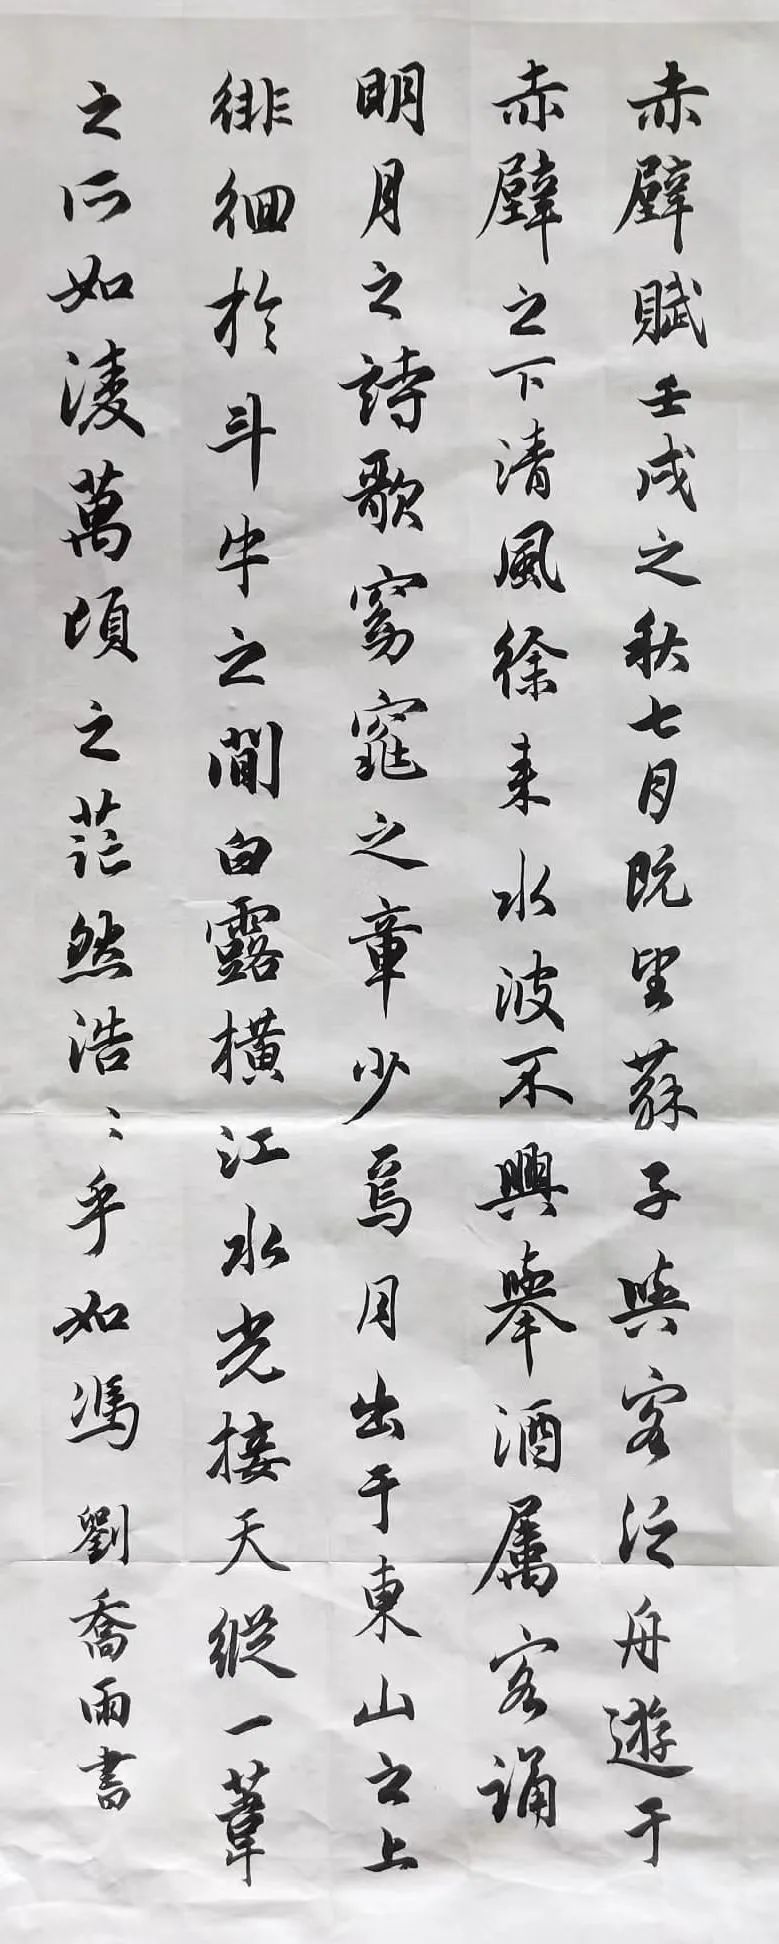 赤壁賦壬戌之秋七月既望蘇子與客泛舟遊于
赤壁之下清風徐来水波不興舉酒属客誦
明月之詩歌窈窕之章少焉月出于東山之上
徘徊於斗牛之間白露橫江水光接天縱一葦
之所如淩萬頃之茫然浩〻乎如馮 劉喬雨書